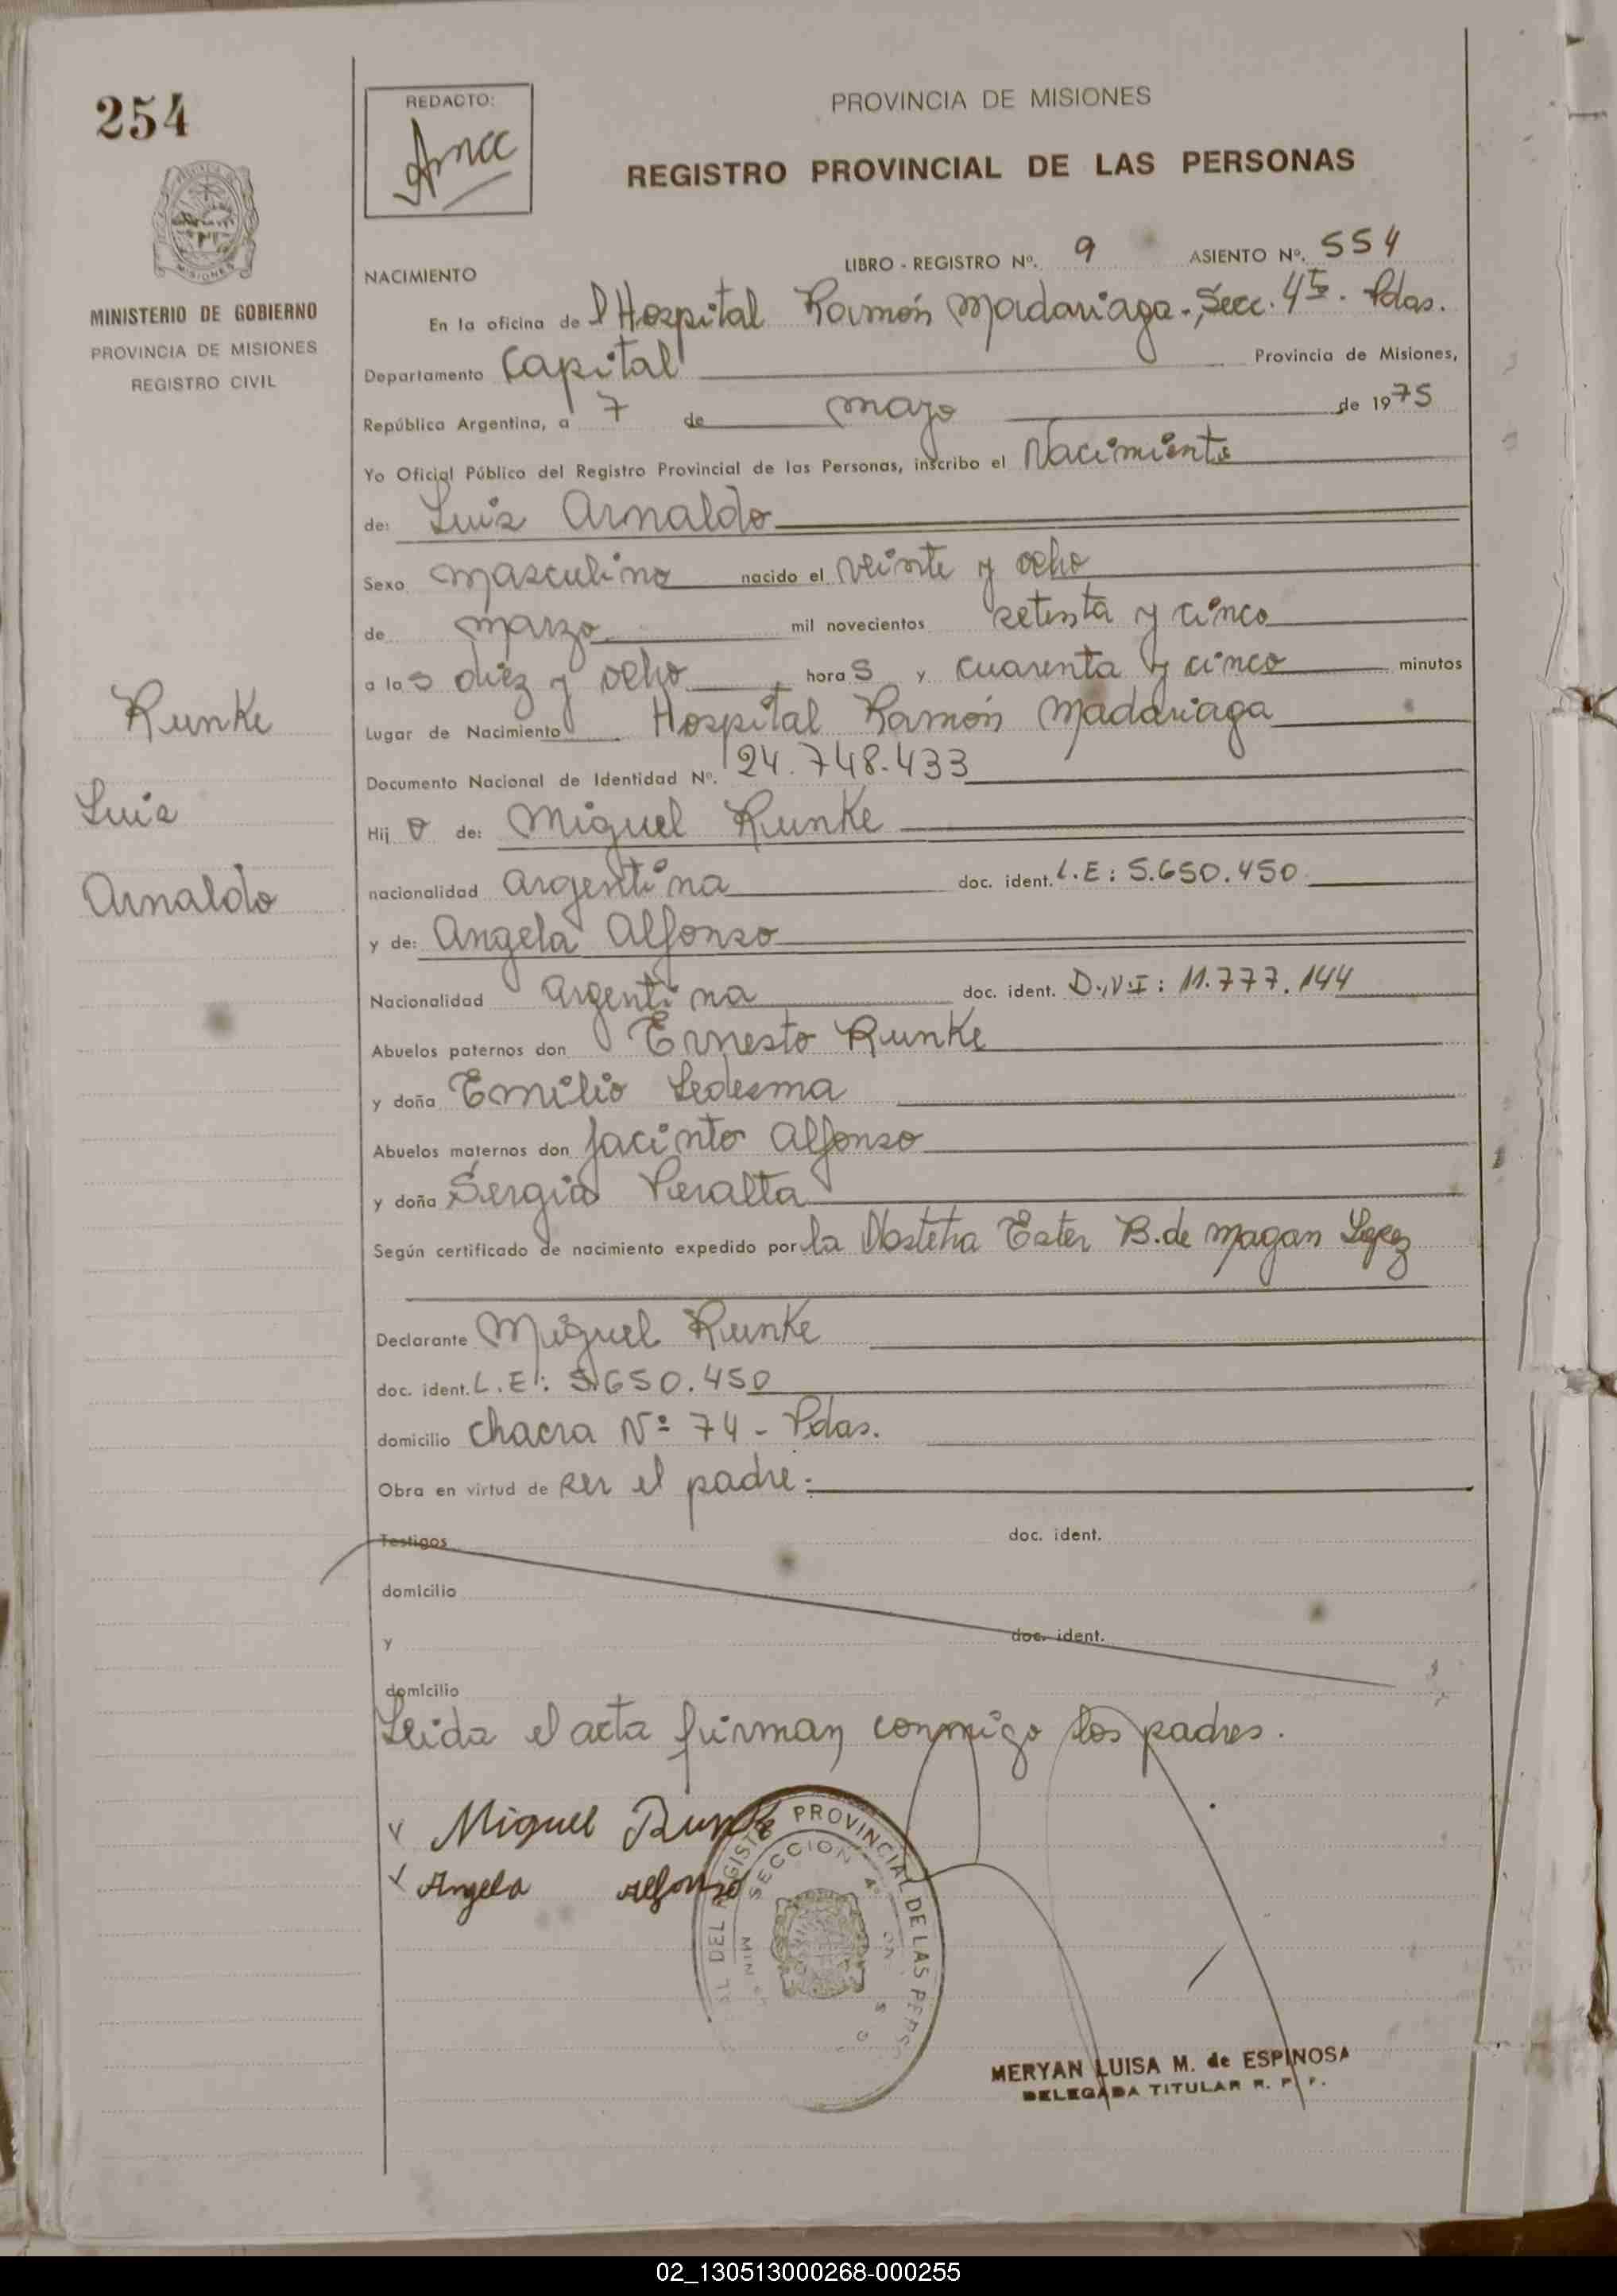 254
MISIONES
MINISTERIO DE GOBIERNO
PROVINCIA DE MISIONES
REGISTRO CIVIL
Runke
Luis
Arnaldo
REDACTO:
PROVINCIA DE MISIONES
REGISTRO PROVINCIAL DE LAS PERSONAS
LIBRO - REGISTRO Nº. 9 ASIENTO Nº. 554
NACIMIENTO
En la oficina de l Hospital Ramón Madariaga-, Secc. 4ta. Pdas.
Departamento Capital Provincia de Misiones,
República Argentina, a 7 de mayo de 1975
Yo Oficial Público del Registro Provincial de las Personas, inscribo el Nacimiento
de: Luis Arnaldo
Sexo masculino nacido el veinte y ocho
de marzo mil novecientos setenta y cinco
a las diez y ocho horas y cuarenta y cinco minutos
Lugar de Nacimiento Hospital Ramón Madariaga
Documento Nacional de Identidad Nº. 24.748.433
Hij o de: Miguel Runke
nacionalidad argentina doc. ident. L.E: 5.650.450
y de: Angela Alfonso
Nacionalidad argentina doc. ident. D.N.I: 11.777.144
Abuelos paternos don Ernesto Runke
y doña Emilio Ledesma
Abuelos maternos don Jacinto Alfonso
y doña Sergia Peralta
Según certificado de nacimiento expedido por la Obstetra Ester B. de Magan Lopez
Declarante Miguel Runke
doc. ident. L.E: 5.650.450
domicilio chacra Nº 74 - Pdas.
Obra en virtud de ser el padre.
Testigos doc. ident.
domicilio
y doc. ident.
domicilio
Leida el acta firman conmigo los padres.
Miguel Runke
Angela Alfonso
DEL REGISTRO PROVINCIAL DE LAS PERS
SECCION 4ª
MERYAN LUISA M. de ESPINOSA
DELEGADA TITULAR R. P. P.
02_130513000268-000255